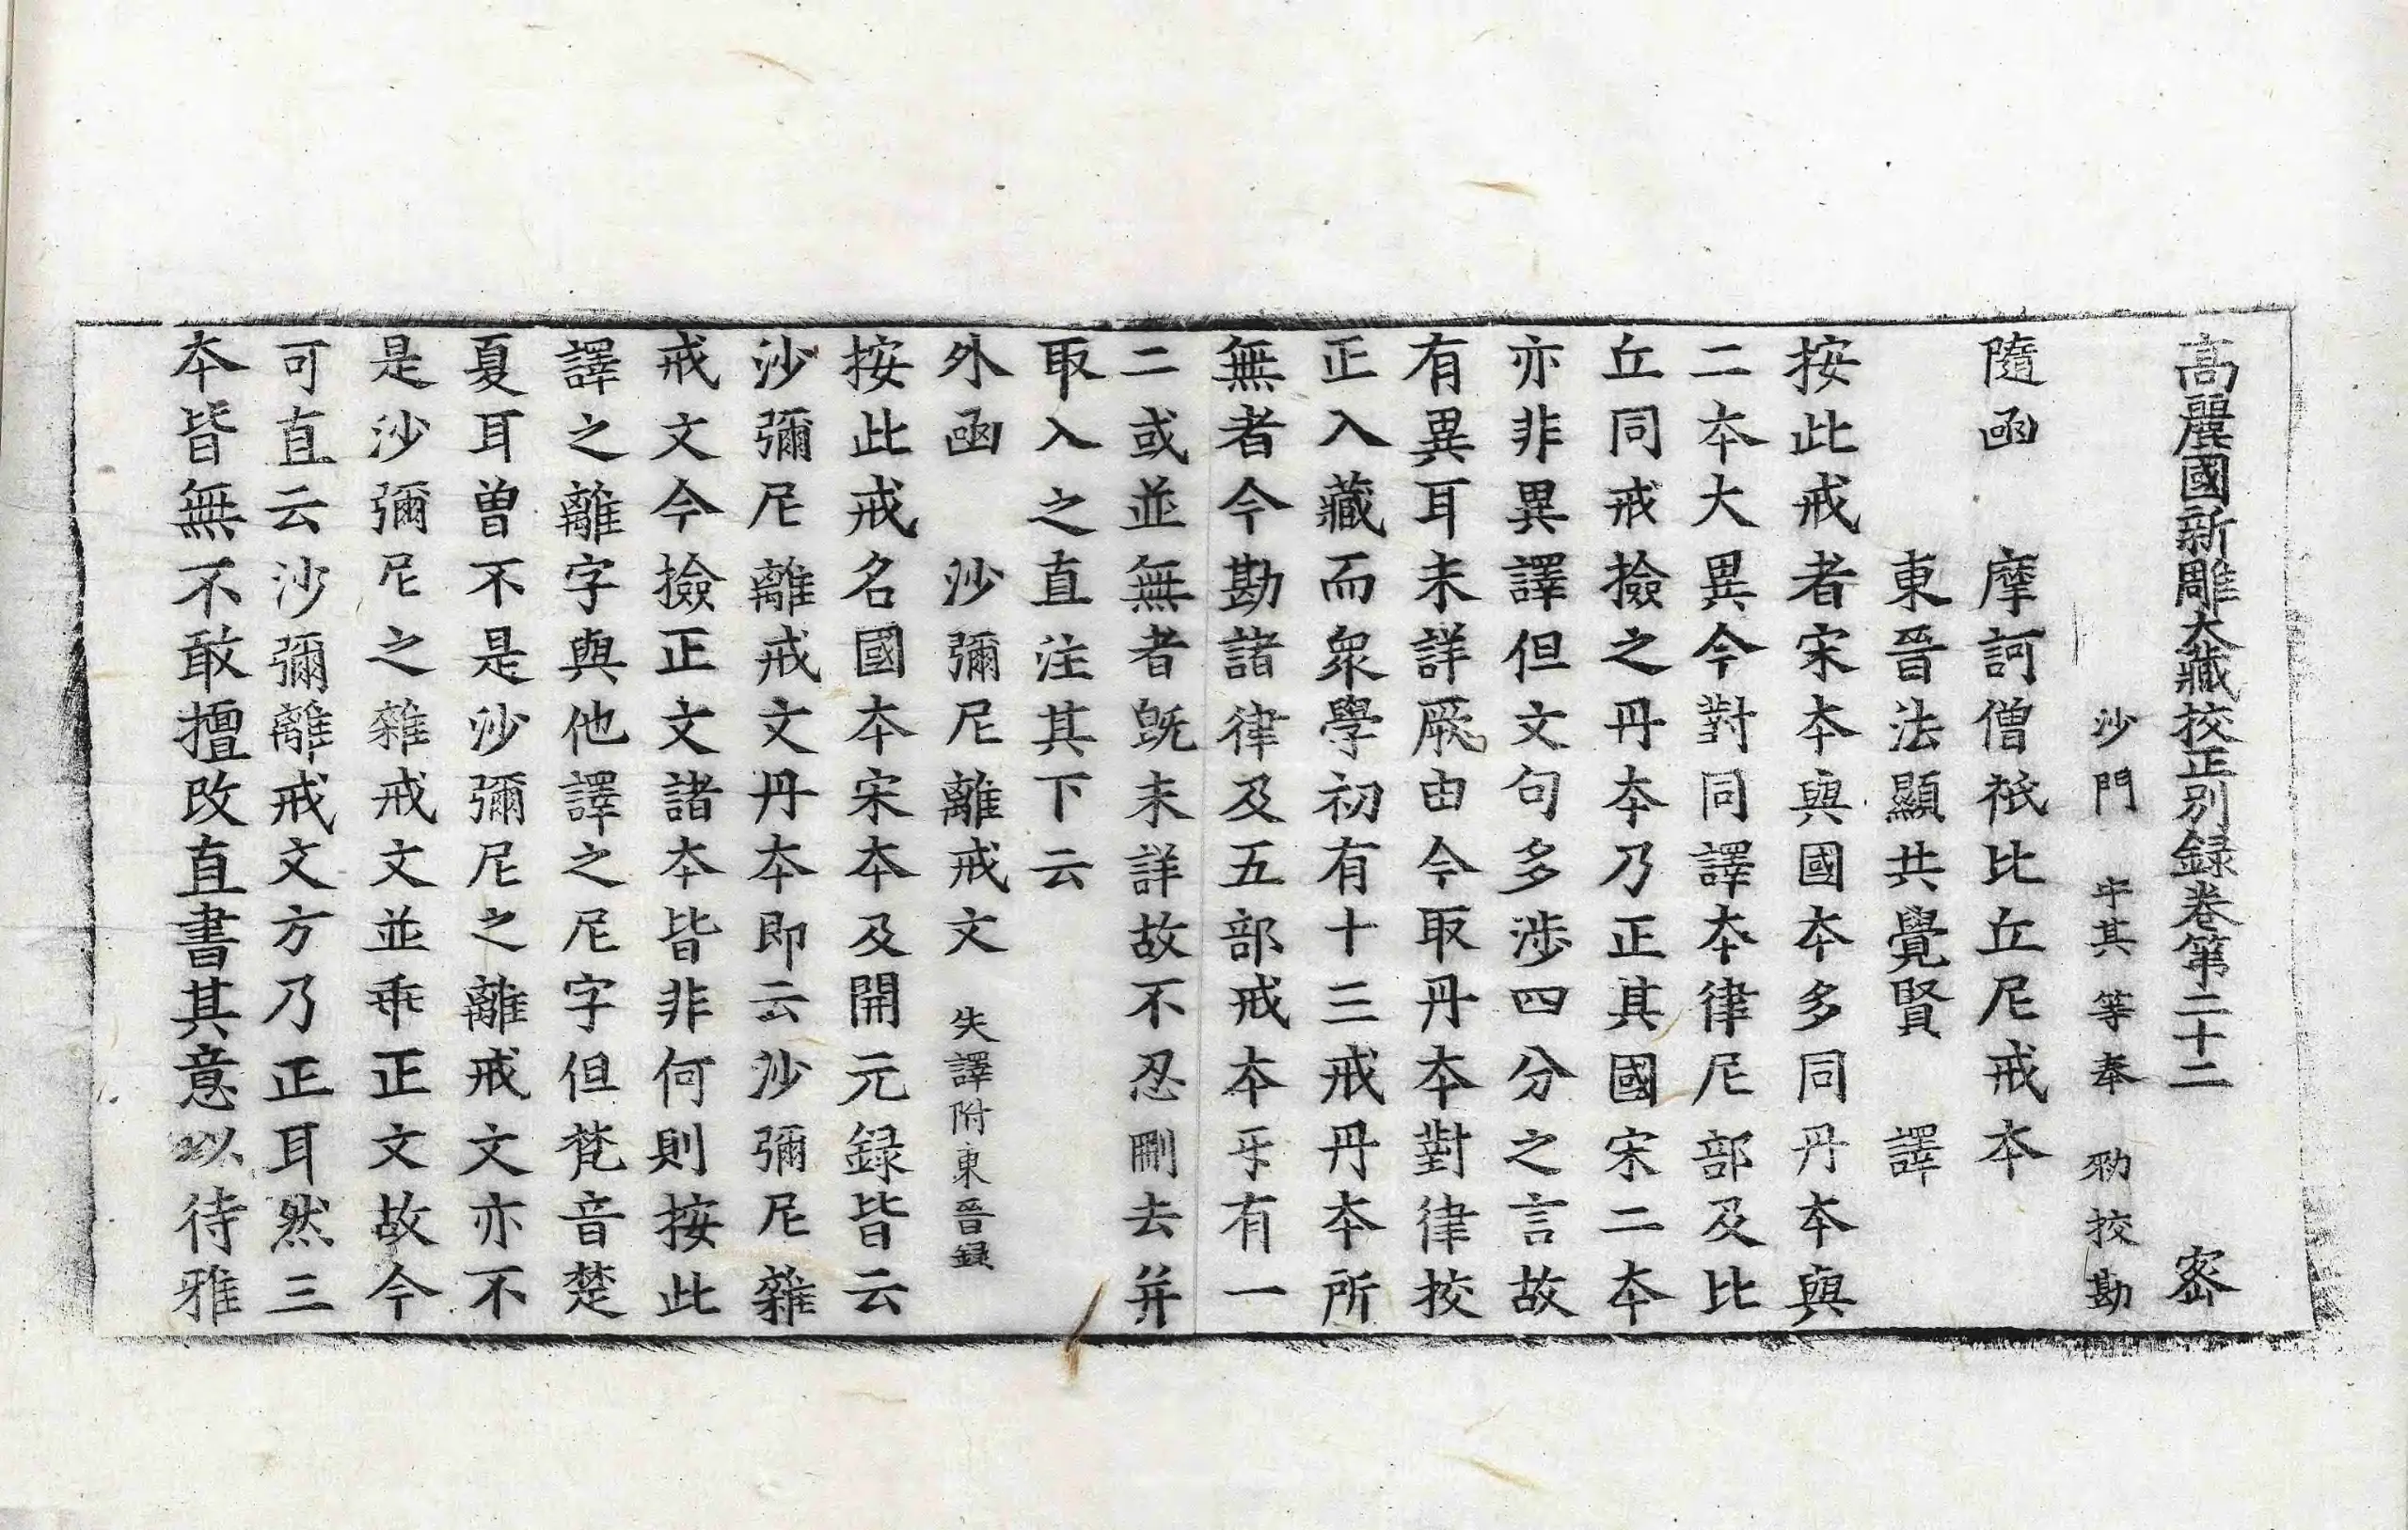 高麗國新雕大藏校正別録卷第二十二 密
沙門 守其 等奉 勑校勘
隨函 摩訶僧祇比丘尼戒本
東晉法顯共覺賢 譯
按此戒者宋本與國本多同丹本與
二本大異今對同譯本律尼部及比
丘同戒撿之丹本乃正其國宋二本
亦非異譯但文句多渉四分之言故
有異耳未詳厥由今取丹本對律挍
正入藏而衆學初有十三戒丹本所
無者今勘諸律及五部戒本乎有一
二或並無者旣未詳故不忍刪去并
取入之直注其下云
外函 沙彌尼離戒文 失譯附東晉録
按此戒名國本宋本及開元録皆云
沙彌尼離戒文丹本即云沙彌尼雜
戒文今撿正文諸本皆非何則按此
譯之離字與他譯之尼字但梵音楚
夏耳曽不是沙彌尼之離戒文亦不
是沙彌尼之雜戒文並乖正文故今
可直云沙彌離戒文方乃正耳然三
本皆無不敢擅改直書其意以待雅